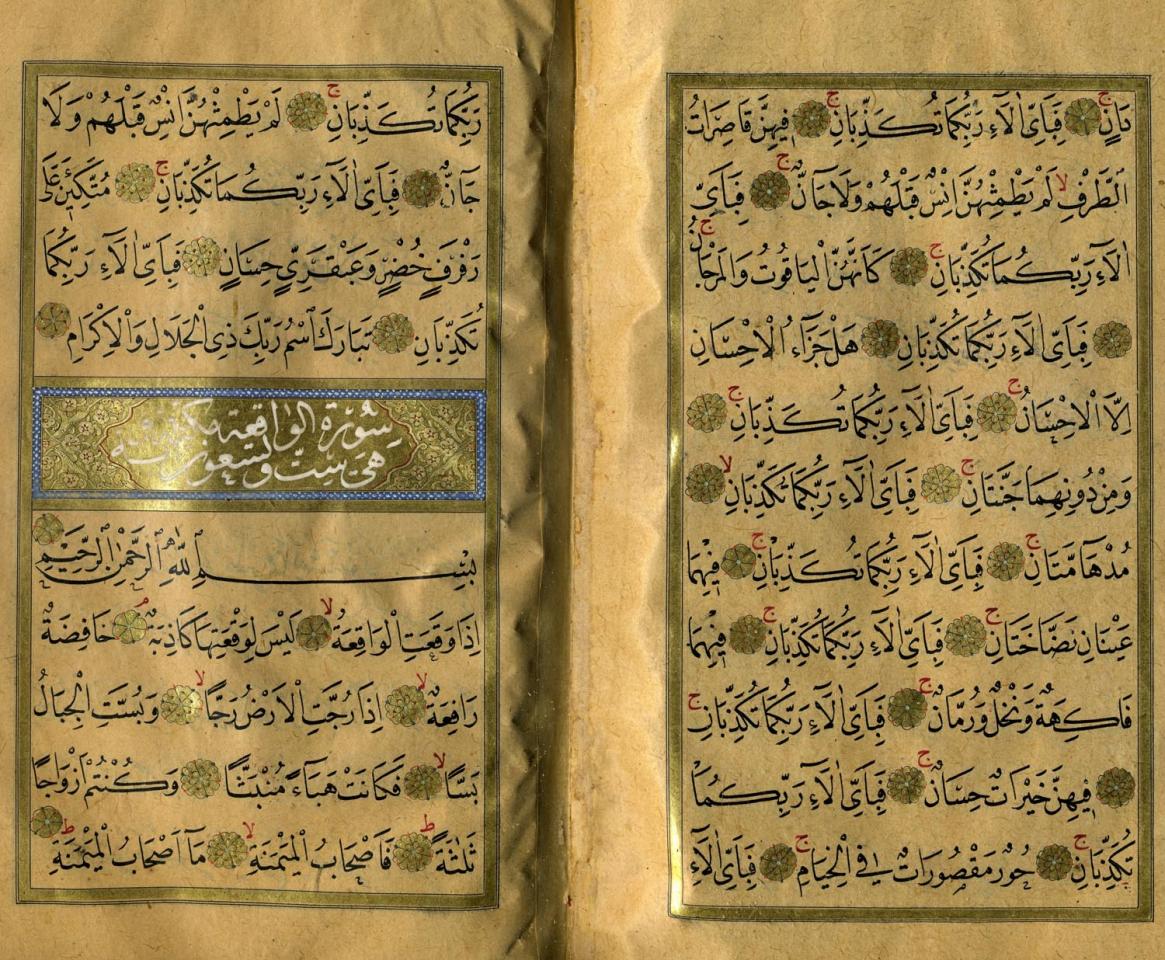 دَانٍ ج فَبِاَيِّ اٰلَآءِ رَبِّكُمَا تُكَذِّبَانِ ج فِيهِنَّ قَاصِرَاتُ
الطَّرْفِ لا لَمْ يَطْمِثْهُنَّ اِنْسٌ قَبْلَهُمْ وَلَا جَانٌّ ج فَبِاَيِّ
اٰلَآءِ رَبِّكُمَا تُكَذِّبَانِ ج كَاَنَّهُنَّ الْيَاقُوتُ وَالْمَرْجَانُ ج
فَبِاَيِّ اٰلَآءِ رَبِّكُمَا تُكَذِّبَانِ هَلْ جَزَآءُ الْاِحْسَانِ
اِلَّا الْاِحْسَانُ ج فَبِاَيِّ اٰلَآءِ رَبِّكُمَا تُكَذِّبَانِ ج
وَمِنْ دُونِهِمَا جَنَّتَانِ ج فَبِاَيِّ اٰلَآءِ رَبِّكُمَا تُكَذِّبَانِ لا
مُدْهَآمَّتَانِ ج فَبِاَيِّ اٰلَآءِ رَبِّكُمَا تُكَذِّبَانِ ج فِيهِمَا
عَيْنَانِ نَضَّاخَتَانِ ج فَبِاَيِّ اٰلَآءِ رَبِّكُمَا تُكَذِّبَانِ ج فِيهِمَا
فَاكِهَةٌ وَنَخْلٌ وَرُمَّانٌ ج فَبِاَيِّ اٰلَآءِ رَبِّكُمَا تُكَذِّبَانِ ج
فِيهِنَّ خَيْرَاتٌ حِسَانٌ ج فَبِاَيِّ اٰلَآءِ رَبِّكُمَا
تُكَذِّبَانِ ج حُورٌ مَقْصُورَاتٌ فِي الْخِيَامِ ج فَبِاَيِّ اٰلَآءِ
رَبِّكُمَا تُكَذِّبَانِ ج لَمْ يَطْمِثْهُنَّ اِنْسٌ قَبْلَهُمْ وَلَا
جَآنٌّ فَبِاَيِّ اٰلَآءِ رَبِّكُمَا تُكَذِّبَانِ ج مُتَّكِئِينَ عَلَى
رَفْرَفٍ خُضْرٍ وَعَبْقَرِيٍّ حِسَانٍ فَبِاَيِّ اٰلَآءِ رَبِّكُمَا
تُكَذِّبَانِ تَبَارَكَ اسْمُ رَبِّكَ ذِي الْجَلَالِ وَالْاِكْرَامِ
سُورَةُ الْوَاقِعَةِ مَكِّيَّةٌ
وَهِيَ سِتٌّ وَتِسْعُونَ
بِسْمِ اللّٰهِ الرَّحْمٰنِ الرَّحِيمِ
اِذَا وَقَعَتِ الْوَاقِعَةُ لا لَيْسَ لِوَقْعَتِهَا كَاذِبَةٌ م خَافِضَةٌ
رَافِعَةٌ لا اِذَا رُجَّتِ الْاَرْضُ رَجًّا لا وَبُسَّتِ الْجِبَالُ
بَسًّا لا فَكَانَتْ هَبَآءً مُنْبَثًّا وَكُنْتُمْ اَزْوَاجًا
ثَلٰثَةً ط فَاَصْحَابُ الْمَيْمَنَةِ لا مَآ اَصْحَابُ الْمَيْمَنَةِ ط